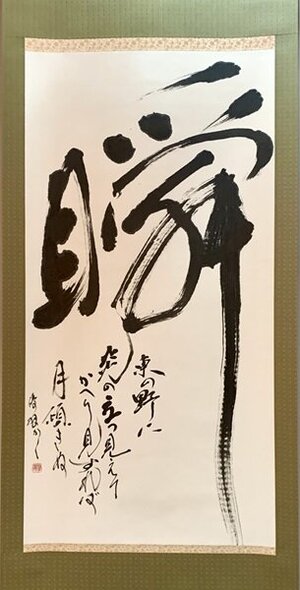 瞬
東の野に
炎の立つ見えて
かへり見すれば
月傾きぬ